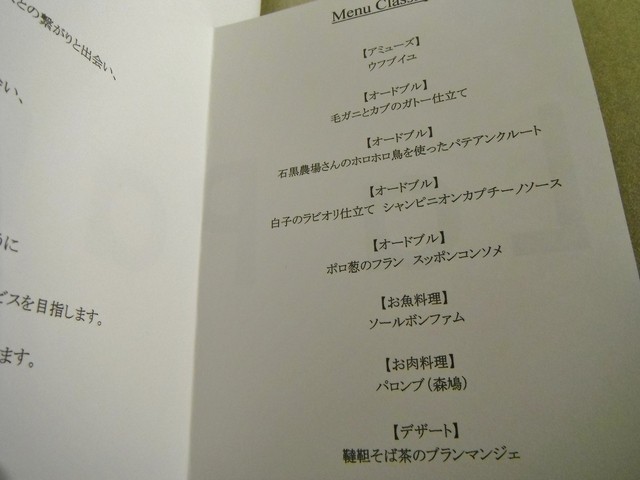 との繋がりと出会い、
い、
うに
ビスを目指します。
ます。
Menu Classi
【アミューズ】
ウフブイユ
【オードブル】
毛ガニとカブのガトー仕立て
【オードブル】
石黒農場さんのホロホロ鳥を使ったパテアンクルート
【オードブル】
白子のラビオリ仕立て シャンピニオンカプチーノソース
【オードブル】
ポロ葱のフラン スッポンコンソメ
【お魚料理】
ソールボンファム
【お肉料理】
パロンブ(森鳩)
【デザート】
韃靼そば茶のブランマンジェ